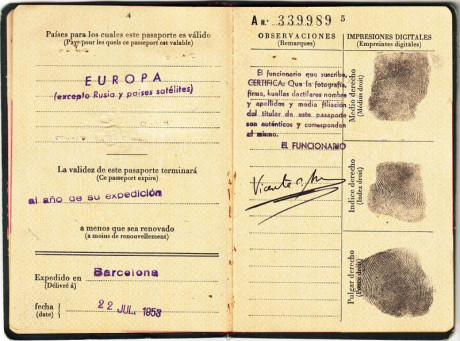 4
Países para los cuales este pasaporte es válido
(Pays pour les quels ce passeport est valable)
EUROPA
(excepto Rusia y países satélites)
La validez de este pasaporte terminará
(Ce passeport expire)
al año de su expedición
a menos que sea renovado
(a moins de renouvellement)
Expedido en Barcelona
(Délivré á)
fecha 22 JUL. 1953
(date)
A N.º 339989 5
OBSERVACIONES
(Remarques)
El funcionario que suscribe,
CERTIFICA: Que la fotografía,
firma, huellas dactilares nombre
y apellidos y media filiación
del titular de este pasaporte
son auténticos y corresponden
al mismo.
EL FUNCIONARIO
IMPRESIONES DIGITALES
(Empreintes digitales)
Medio derecho
(Médius droit)
Indice derecho
(Index droit)
Pulgar derecho
(Pouce droit)